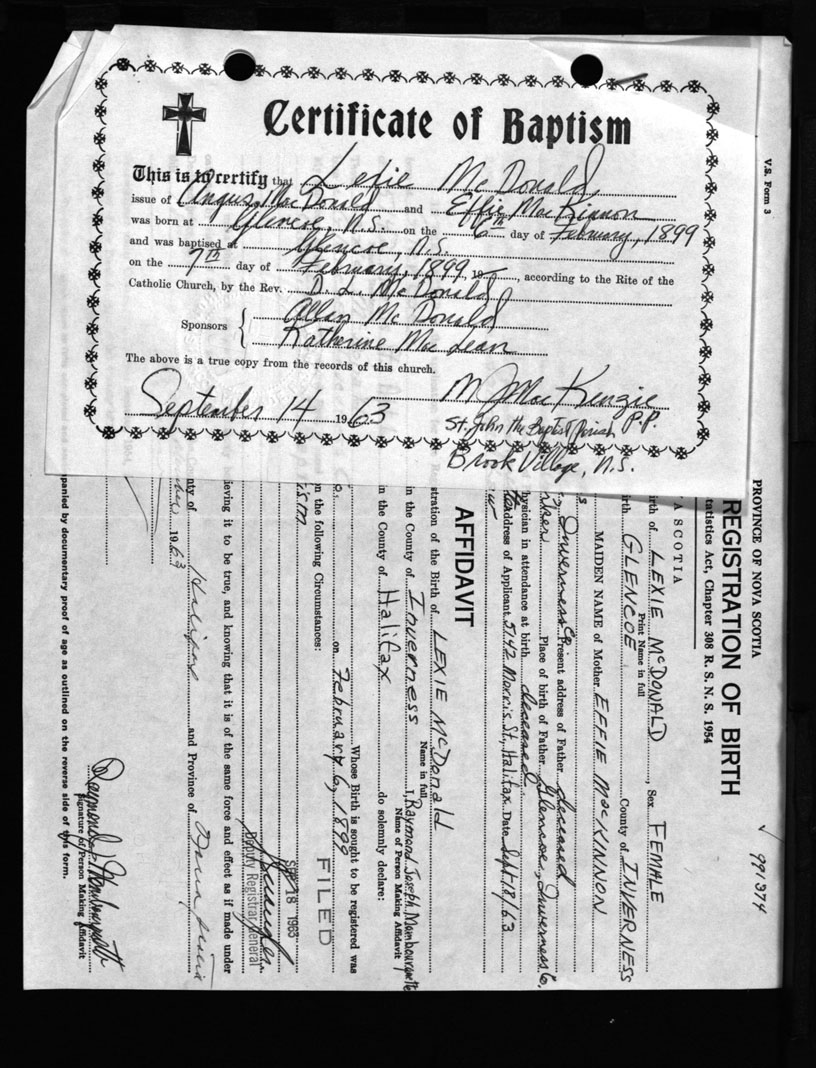 Certificate of Baptism
This is to certify that Lexie McDonald
issue of Angus MacDonald and Effie MacKinnon
was born at Glencoe, N.S. on the 6th day of February, 1899
and was baptised at Glencoe, N.S.
on the 7th day of February, 1899, 19 , according to the Rite of the
Catholic Church, by the Rev. D. L. McDonald
Sponsors { Allan McDonald
Katherine MacLean
The above is a true copy from the records of this church.
M J MacKenzie
September 14 1963
St. John the Baptist Parish P.P.
Brook Village, N.S.
V.S. Form 3
991374
PROVINCE OF NOVA SCOTIA
REGISTRATION OF BIRTH
tatistics Act, Chapter 308 R. S. N. S. 1954
A SCOTIA
irth of LEXIE McDONALD, Sex FEMALE
Print Name in full
irth GLENCOE County of INVERNESS
MAIDEN NAME of Mother EFFIE MacKINNON
Inverness Co Present address of Father deceased
Place of birth of Father Glencoe, Inverness Co,
hysician in attendance at birth deceased
Address of Applicant 5142 Morris St, Halifax Date Sept 18/63
AFFIDAVIT
stration of the Birth of LEXIE McDonald
Name in full
in the County of Inverness I, Raymond Joseph Mombourquette
Name of Person Making Affidavit
in the County of Halifax do solemnly declare:
Whose Birth is sought to be registered was
on February 6, 1899
on the following Circumstances:
FILED
SEP 18 1963
Deputy Registrar General
ieving it to be true, and knowing that it is of the same force and effect as if made under
nty of Halifax and Province of Nova Scotia
1963
Raymond J Mombourquette
Signature of Person Making Affidavit
panied by documentary proof of age as outlined on the reverse side of this form.